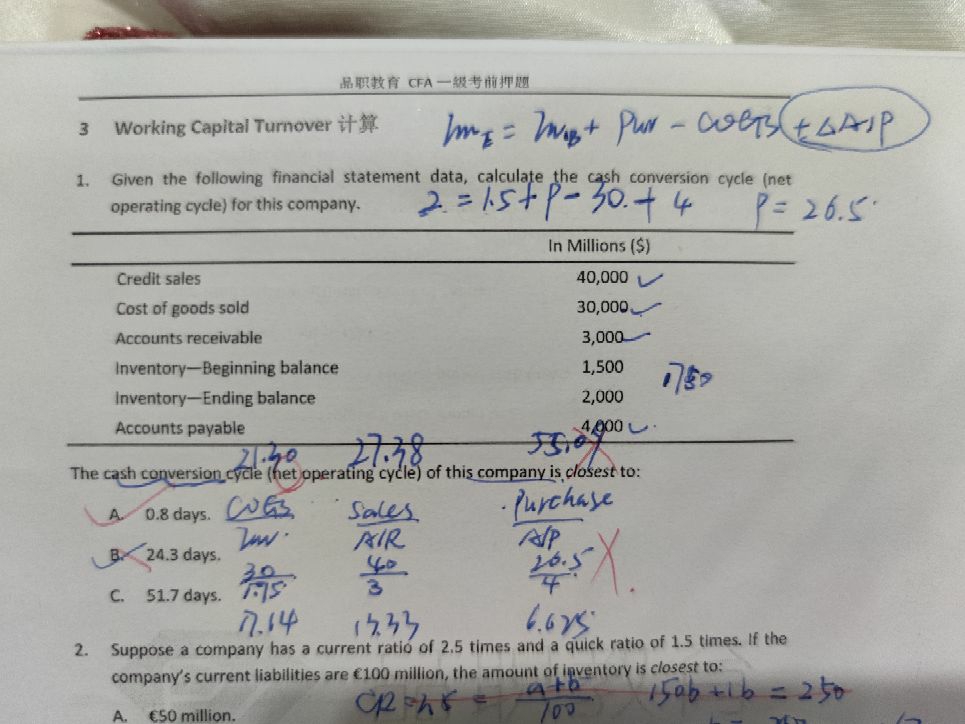 品职教育 CFA 一级考前押题
3 Working Capital Turnover 计算
Inv_E = Inv_B + Pur - COGS + ΔA/P
1. Given the following financial statement data, calculate the cash conversion cycle (net
operating cycle) for this company.
2 = 1.5 + P - 30 + 4 P = 26.5
In Millions ($)
Credit sales 40,000
Cost of goods sold 30,000
Accounts receivable 3,000
Inventory—Beginning balance 1,500
1750
Inventory—Ending balance 2,000
Accounts payable 4,000
21.30 27.38 55.09
The cash conversion cycle (net operating cycle) of this company is closest to:
A. 0.8 days.
COGS Sales Purchase
Inv A/R A/P
B. 24.3 days.
30 40 26.5
1.75 3 4
C. 51.7 days.
17.14 13.33 6.625
2. Suppose a company has a current ratio of 2.5 times and a quick ratio of 1.5 times. If the
company's current liabilities are €100 million, the amount of inventory is closest to:
CR = 2.5 = a+b
100
A. €50 million.